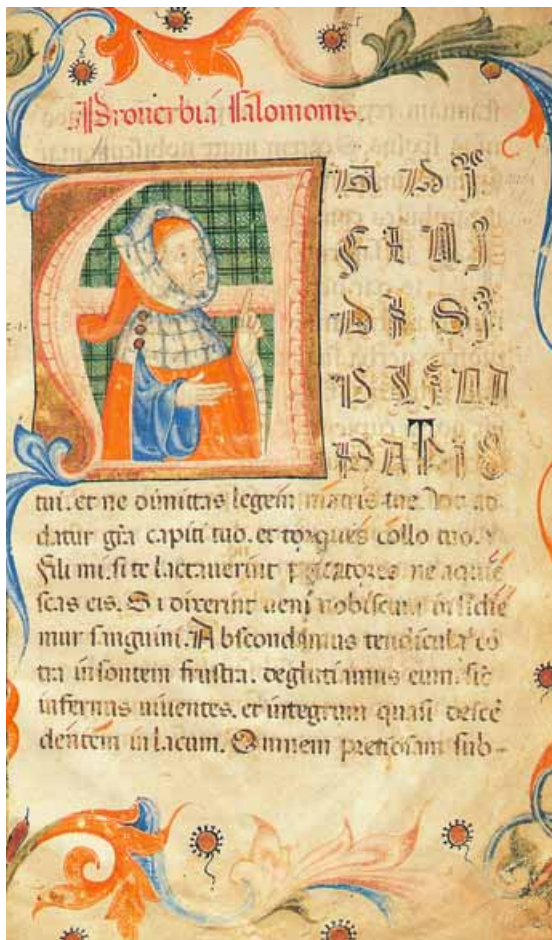 Prouerbia Salomonis.
A
PATIS
tui. et ne dimittas legem matris tue. ut ad
datur gra capiti tuo. et torques collo tuo.
Fili mi. si te lactauerint peccatores ne aquie
scas eis. Si dixerint ueni nobiscum insidie
mur sanguini. Abscondamus tendicula co
tra insontem frustra. deglutiamus eum. sic
infernus uiuentes. et integrum quasi desce
dentem in lacum. Omnem pretiosam sub-